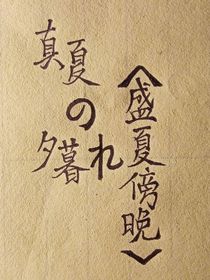 真夏
の
夕暮れ
《盛夏傍晚》